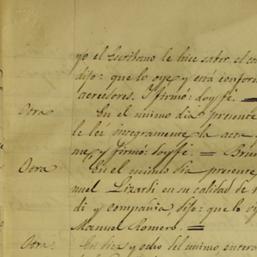 yo el Escribano le hice saber el co
dijo: que lo oye y está conform
acreedores. Y firmó: doy fé. =
Otra En el mismo dia presente
le leí integramente la acta y
me, y firmó: doy fé. = Brun
Otra En el mismo dia presente
nuel Lizardi en su calidad de
di y compañia, dijo: que lo oy
Manuel Romero. =
Otra: En diez y ocho del mismo entera